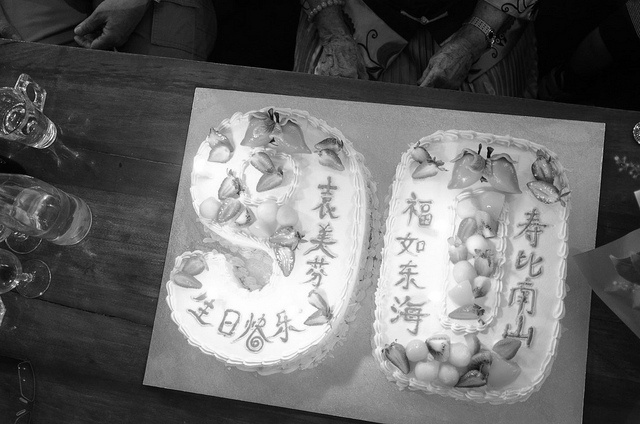 袁美芬
生日快乐
福如东海
寿比南山